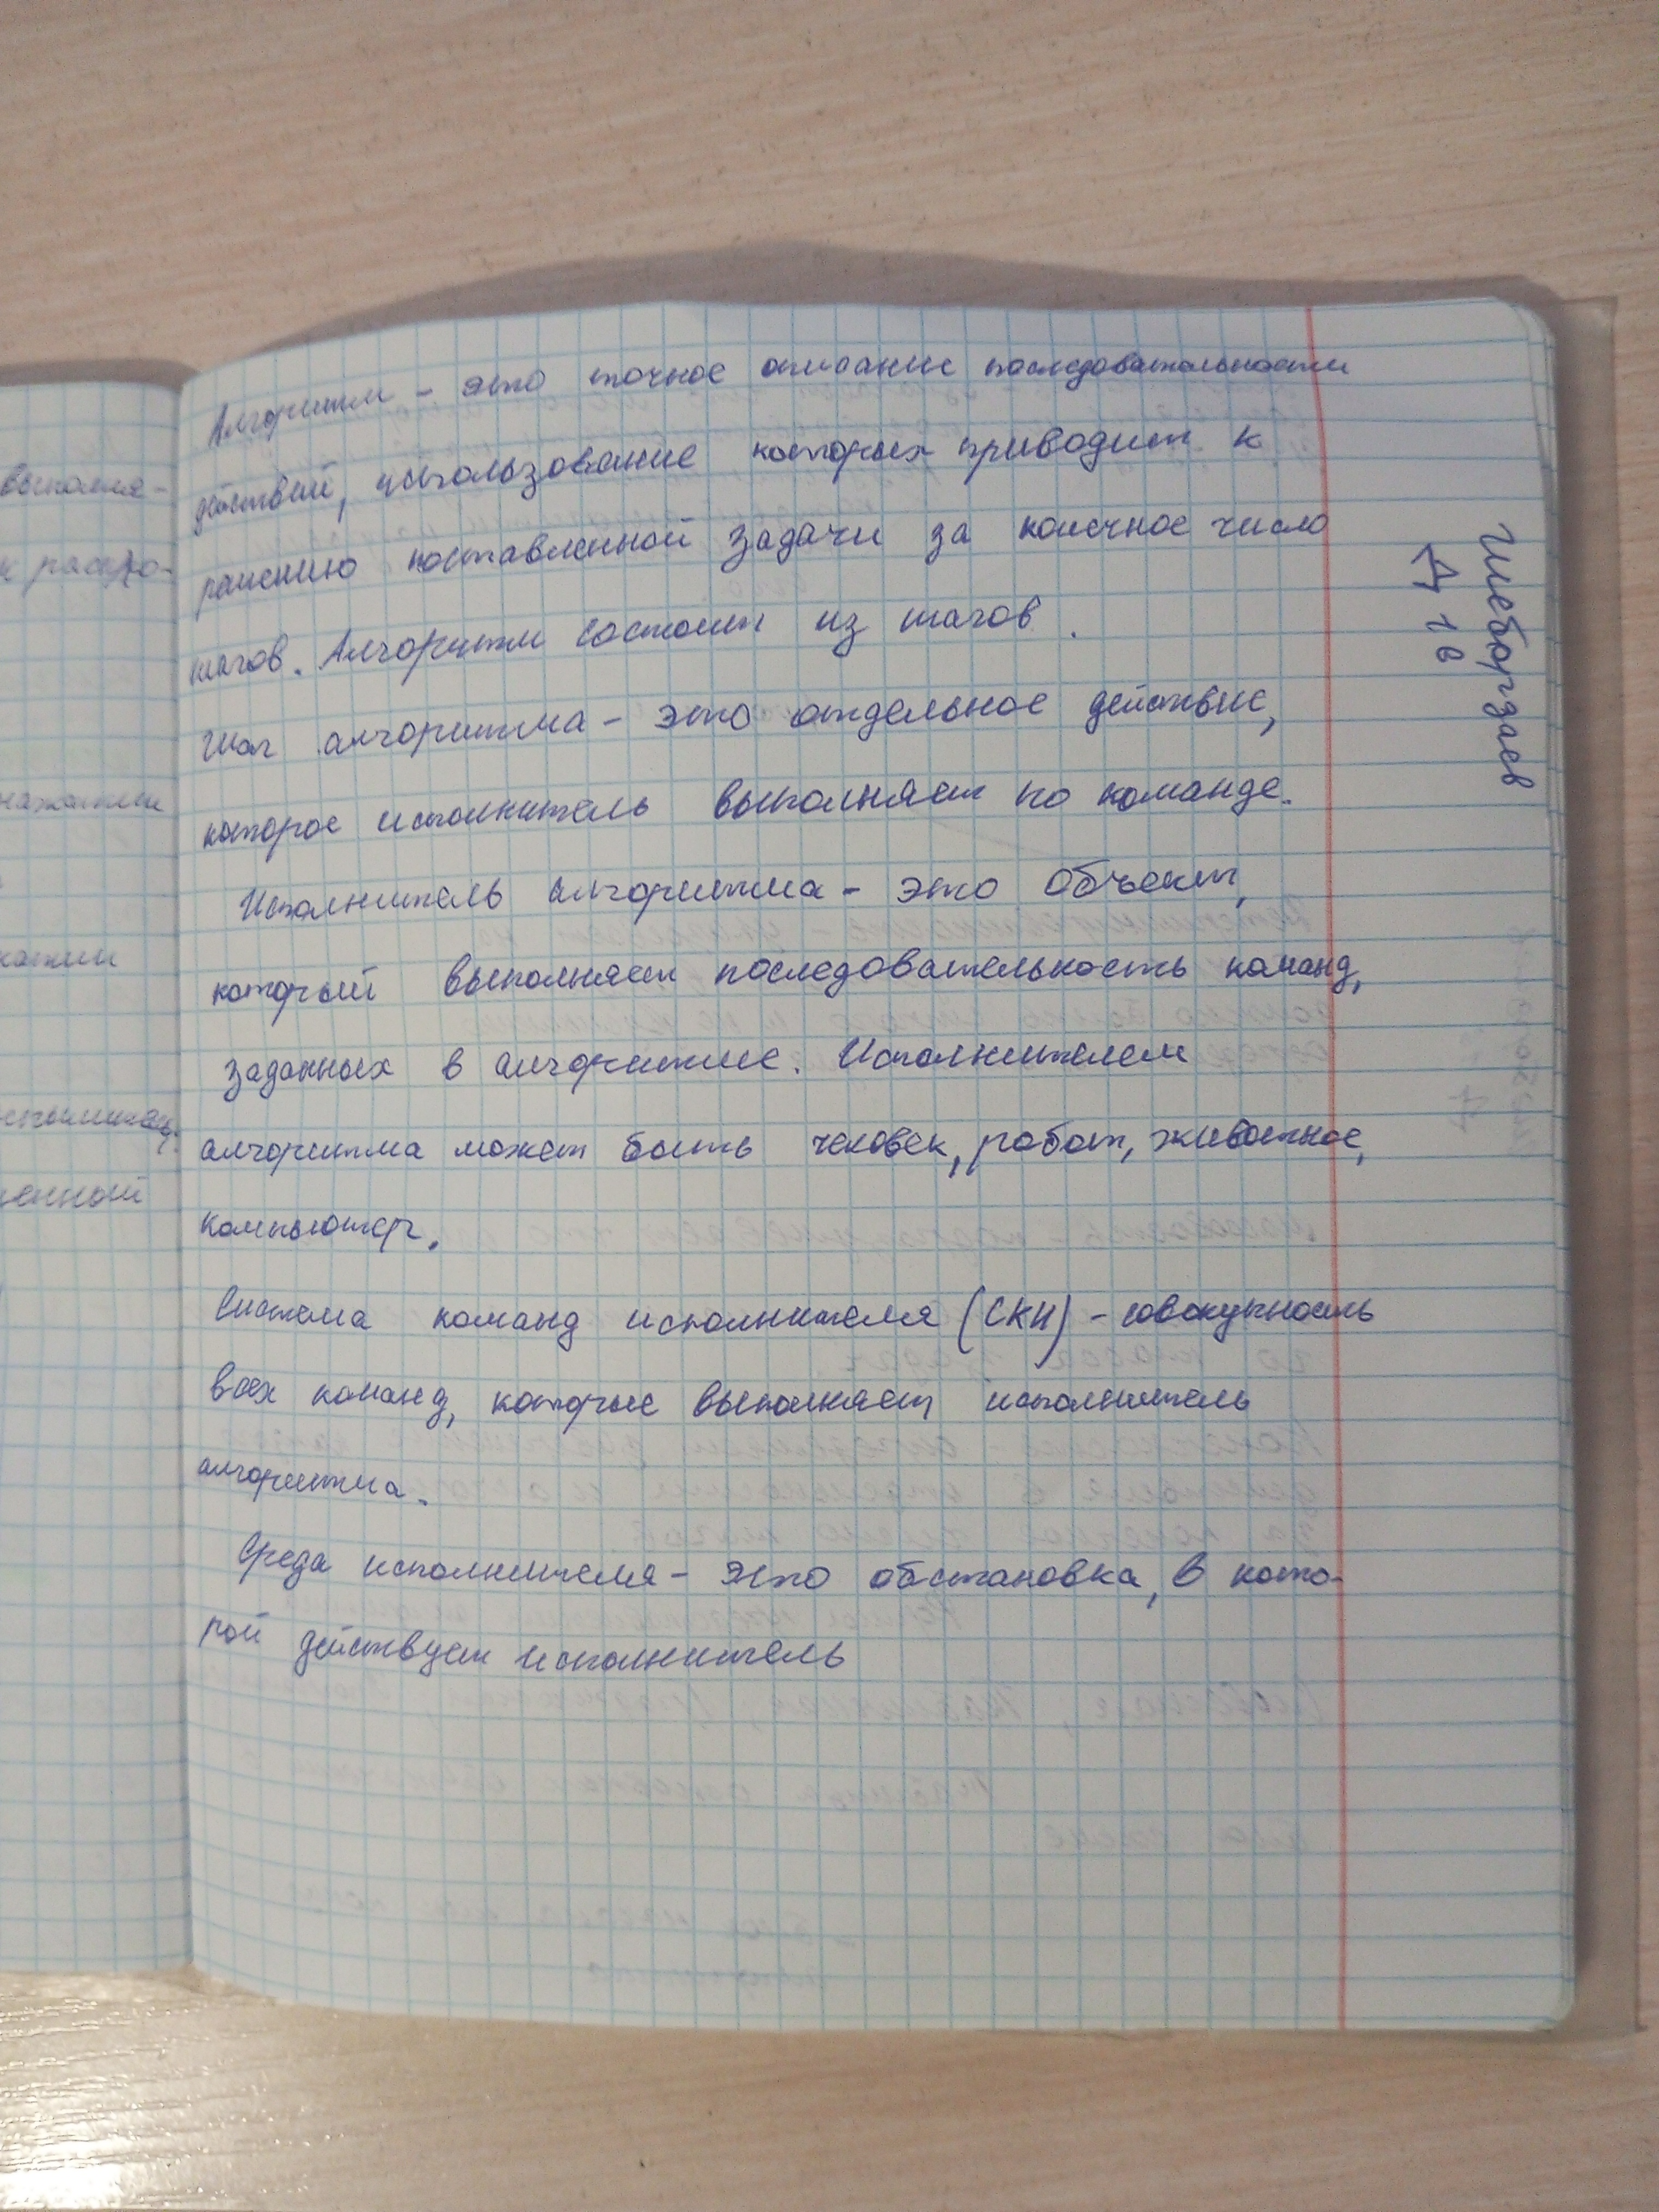 Алгоритм - это точное описание последовательности
действий, использование которых приводит к
решению поставленной задачи за конечное число
шагов. Алгоритм состоит из шагов.
Шаг алгоритма - это отдельное действие,
которое исполнитель выполняет по команде.
Исполнитель алгоритма - это объект,
который выполняет последовательность команд,
заданных в алгоритме. Исполнителем
алгоритма может быть человек, робот, животное,
компьютер.
Система команд исполнителя (СКИ) - совокупность
всех команд, которые выполняет исполнитель
алгоритма.
Среда исполнителя - это обстановка, в кото-
рой действует исполнитель
выполня-
нажатии
енной